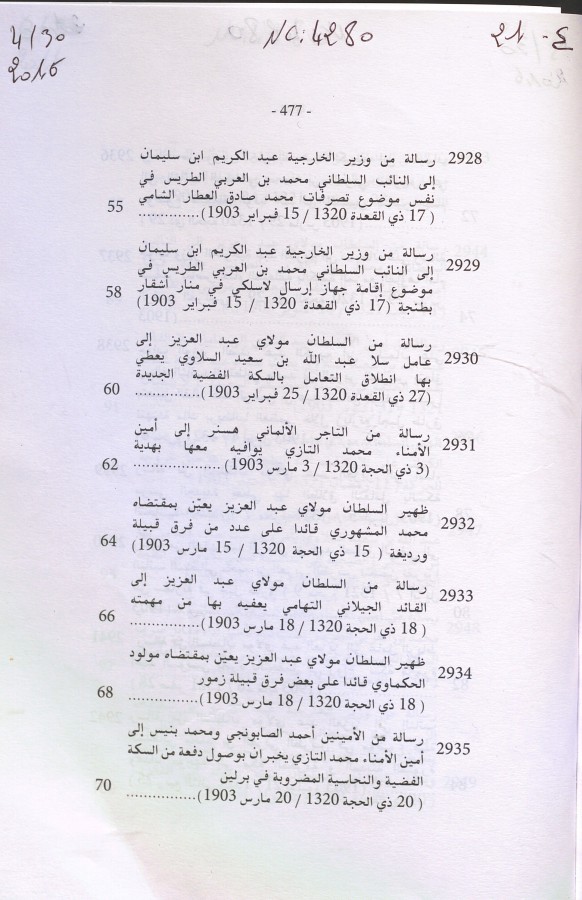 4/30
2015
NC: 4280
21 - ع
- 477 -
2928 رسالة من وزير الخارجية عبد الكريم ابن سليمان
إلى النائب السلطاني محمد بن العربي الطريس في
نفس موضوع تصرفات محمد صادق العطار الشامي
( 17 ذي القعدة 1320 / 15 فبراير 1903).............. 55
2929 رسالة من وزير الخارجية عبد الكريم ابن سليمان
إلى النائب السلطاني محمد بن العربي الطريس في
موضوع إقامة جهاز إرسال لاسلكي في منار أشقار
بطنجة (17 ذي القعدة 1320 / 15 فبراير 1903) 58
2930 رسالة من السلطان مولاي عبد العزيز إلى
عامل سلا عبد الله بن سعيد السلاوي يعطي
بها انطلاق التعامل بالسكة الفضية الجديدة
(27 ذي القعدة 1320 / 25 فبراير 1903)............... 60
2931 رسالة من التاجر الألماني هسنر إلى أمين
الأمناء محمد التازي يوافيه معها بهدية
(3 ذي الحجة 1320 / 3 مارس 1903) .................... 62
2932 ظهير السلطان مولاي عبد العزيز يعيّن بمقتضاه
محمد المشهوري قائدا على عدد من فرق قبيلة
ورديغة ( 15 ذي الحجة 1320 / 15 مارس 1903) 64
2933 رسالة من السلطان مولاي عبد العزيز إلى
القائد الجيلاني التهامي يعفيه بها من مهمته
( 18 ذي الحجة 1320 / 18 مارس 1903)................ 66
2934 ظهير السلطان مولاي عبد العزيز يعيّن بمقتضاه مولود
الحكماوي قائدا على بعض فرق قبيلة زمور
( 18 ذي الحجة 1320 / 18 مارس 1903)................ 68
2935 رسالة من الأمينين أحمد الصابونجي ومحمد بنيس إلى
أمين الأمناء محمد التازي يخبران بوصول دفعة من السكة
الفضية والنحاسية المضروبة في برلين
( 20 ذي الحجة 1320 / 20 مارس 1903)................ 70